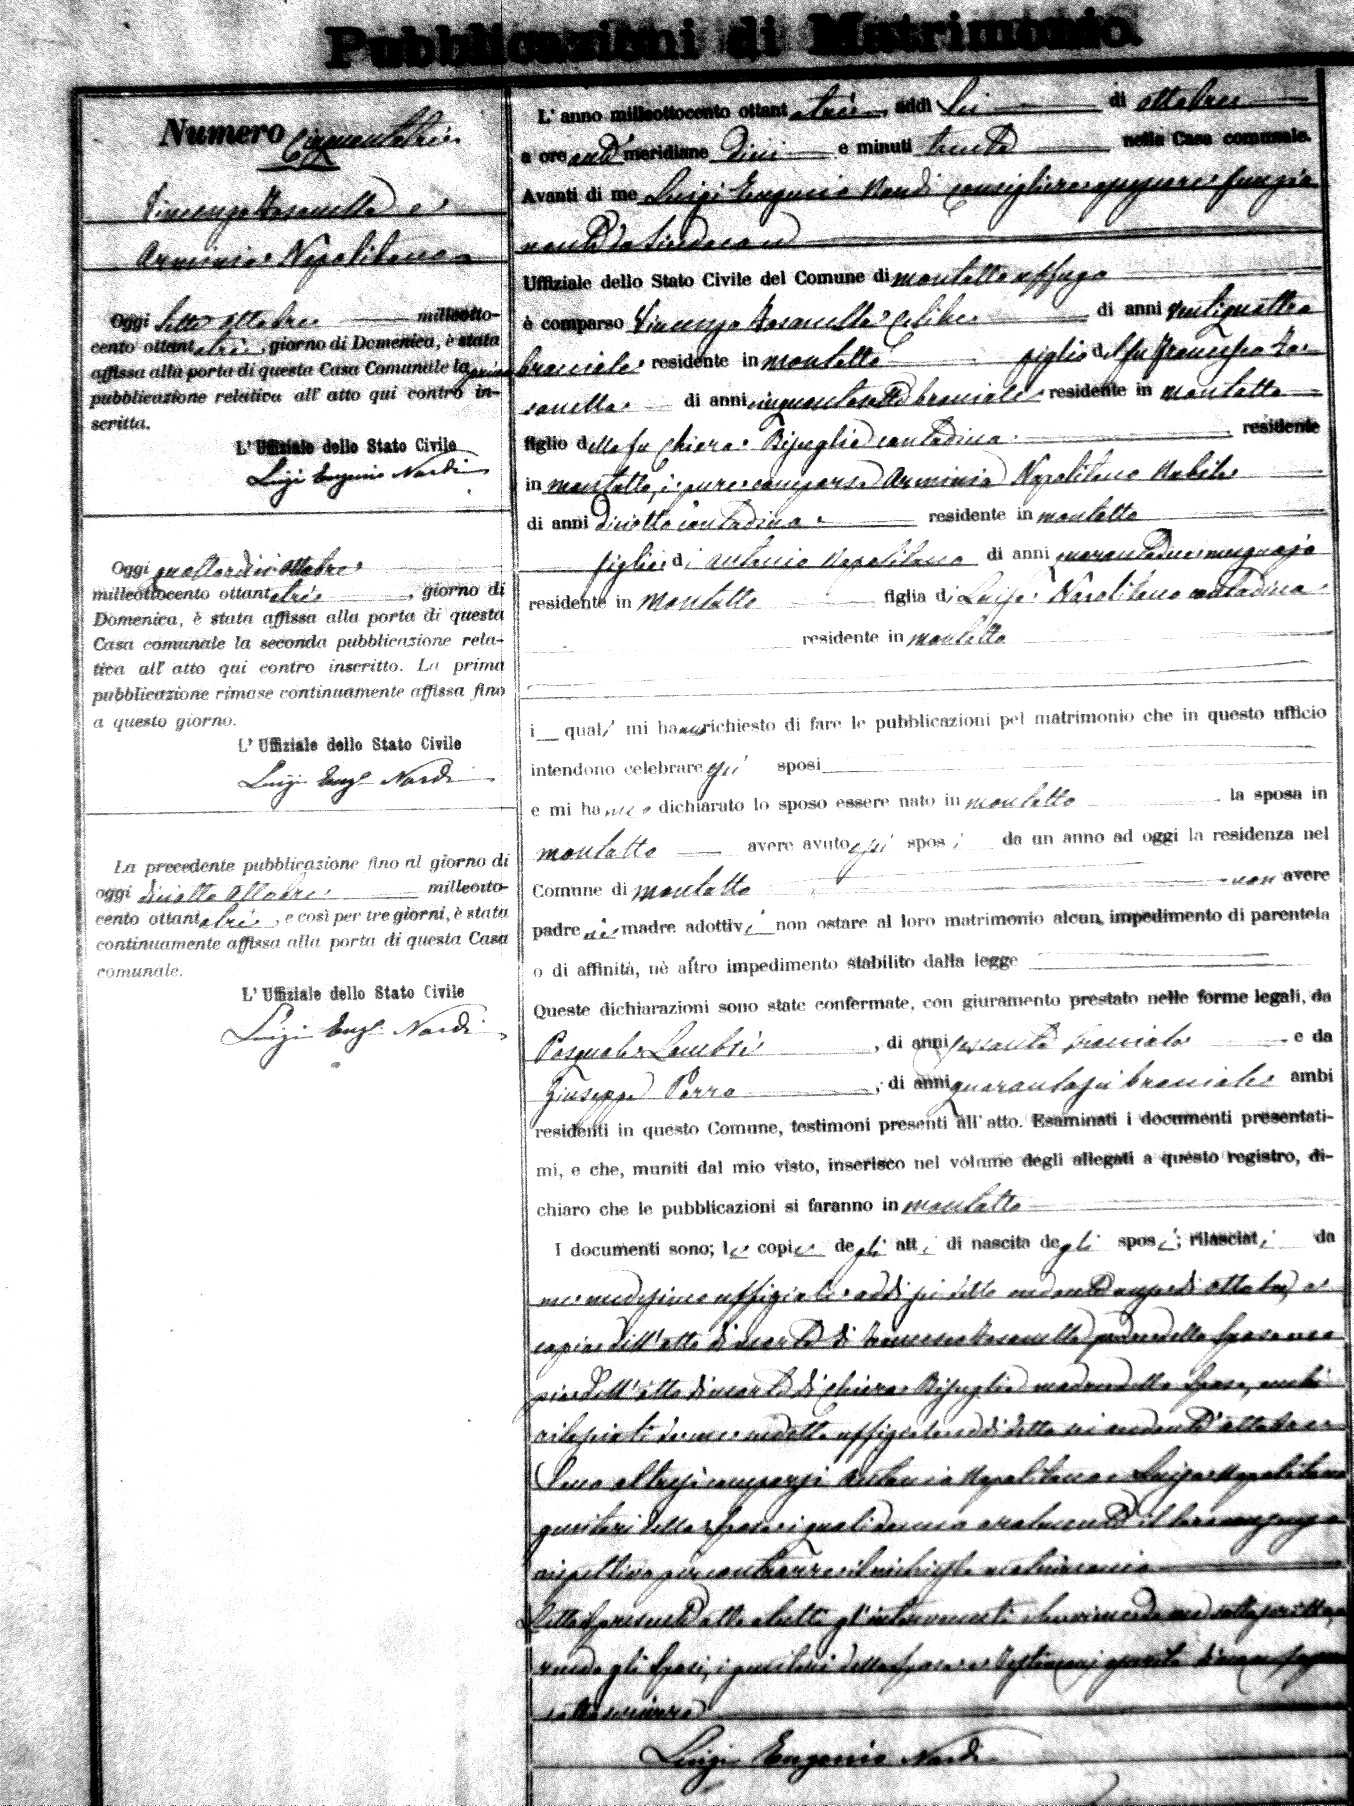 Pubblicazioni di Matrimonio.
Numero Cinquantatrè
Vincenzo Tosanella e
Arminia Napolitano
Oggi sette Ottobre milleotto-
cento ottantatrè, giorno di Domenica, è stata
affissa alla porta di questa Casa Comunale la prima
pubblicazione relativa all' atto qui contro in-
scritta.
L' Uffiziale dello Stato Civile
Luigi Eugenio Nardi
Oggi quattordici Ottobre
milleottocento ottantatrè, giorno di
Domenica, è stata affissa alla porta di questa
Casa comunale la seconda pubblicazione rela-
tica all' atto qui contro inscritto. La prima
pubblicazione rimase continuamente affissa fino
a questo giorno.
L' Uffiziale dello Stato Civile
Luigi Eug. Nardi
La precedente pubblicazione fino al giorno di
oggi diciotto Ottobre milleotto-
cento ottantatrè, e così per tre giorni, è stata
continuamente affissa alla porta di questa Casa
comunale.
L' Uffiziale dello Stato Civile
Luigi Eug. Nardi
L' anno milleottocento ottantatrè, addì Sei di Ottobre
a ore antimeridiane dieci e minuti trenta nella Casa comunale.
Avanti di me Luigi Eugenio Nardi Consigliere funzio
nante da Sindaco
Uffiziale dello Stato Civile del Comune di montalto uffugo
è comparso Vincenzo Tosanella Celibe di anni ventiquattro
bracciale residente in montalto figlio del fu Francesco To-
sanella di anni cinquantasette bracciale residente in montalto
figlio della fu Chiara Bisuglia contadina residente
in montalto, è pure comparsa Arminia Napolitano Nubile
di anni diciotto contadina residente in montalto
figlia di Antonio Napolitano di anni quarantadue mugnajo
residente in montalto figlia di Luisa Napolitano contadina
residente in montalto
i quali mi hanno richiesto di fare le pubblicazioni pel matrimonio che in questo ufficio
intendono celebrare essi sposi
e mi hanno dichiarato lo sposo essere nato in montalto la sposa in
montalto avere avuto essi sposi da un anno ad oggi la residenza nel
Comune di montalto non avere
padre nè madre adottivi non ostare al loro matrimonio alcun impedimento di parentela
o di affinità, nè altro impedimento stabilito dalla legge
Queste dichiarazioni sono state confermate, con giuramento prestato nelle forme legali, da
Pasquale, di anni sessanta bracciale e da
Giuseppe Porro, di anni quarantasei bracciale ambi
residenti in questo Comune, testimoni presenti all' atto. Esaminati i documenti presentati-
mi, e che, muniti dal mio visto, inserisco nel volume degli allegati a questo registro, di-
chiaro che le pubblicazioni si faranno in montalto
I documenti sono; le copie degli atti di nascita degli sposi; rilasciati da
me medesimo uffiziale addì sei detto andante mese di Ottobre, e
copia dell' atto di morte di Francesco Tosanella padre dello sposo e co
pia dell' atto di morte di Chiara Bisuglia madre dello sposo, ambi
rilasciati da me uffiziale addì detto sei andante Ottobre
Sono altresì comparsi Antonio Napolitano e Luisa Napolitano
genitori della sposa i quali danno oralmente il loro consenso
rispettivo per contrarre il richiesto matrimonio
Letto il presente atto a tutti gl' intervenuti da me sottoscritto
gli sposi, i genitori della sposa e testimoni
sottoscrivere
Luigi Eugenio Nardi